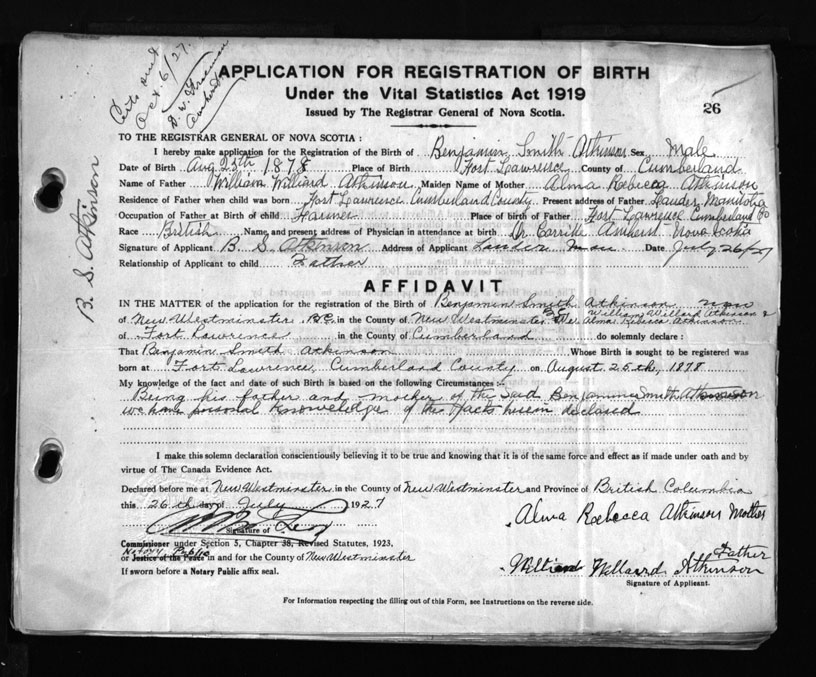 Certs sent
Oct 6/27.
D. W.
Amherst
APPLICATION FOR REGISTRATION OF BIRTH
Under the Vital Statistics Act 1919
Issued by The Registrar General of Nova Scotia.
26
B. S. Atkinson
TO THE REGISTRAR GENERAL OF NOVA SCOTIA:
I hereby make application for the Registration of the Birth of Benjamin Smith Atkinson Sex Male
Date of Birth Aug 25th 1878 Place of Birth Fort Lawrence County of Cumberland
Name of Father William Willard Atkinson Maiden Name of Mother Alma Roebecca Atkinson
Residence of Father when child was born Fort Lawrence Cumberland County Present address of Father Lauder Manitoba
Occupation of Father at Birth of child Farmer Place of birth of Father Fort Lawrence Cumberland Co
Race British Name and present address of Physician in attendance at birth Dr Carritte Amherst Nova Scotia
Signature of Applicant B. S. Atkinson Address of Applicant Lauder Man Date July 26/27
Relationship of Applicant to child Father
AFFIDAVIT
IN THE MATTER of the application for the registration of the Birth of Benjamin Smith Atkinson now
of New Westminster B.C. in the County of New Westminster We William Willard Atkinson &
Alma Rebecca Atkinson
of Fort Lawrence in the County of Cumberland do solemnly declare:
That Benjamin Smith Atkinson Whose Birth is sought to be registered was
born at Fort Lawrence, Cumberland County on August 25th, 1878
My knowledge of the fact and date of such Birth is based on the following Circumstances:-
Being his father and mother of the said Benjamin Smith Atkinson
we have personal knowledge of the facts herein declared
I make this solemn declaration conscientiously believing it to be true and knowing that it is of the same force and effect as if made under oath and by
virtue of The Canada Evidence Act.
Declared before me at New Westminster in the County of New Westminster and Province of British Columbia
this 26th day of July 1927
Alma Roebecca Atkinson Mother
Signature of
Commissioner under Section 5, Chapter 38, Revised Statutes, 1923,
Notary Public
or Justice of the Peace in and for the County of New Westminster
Father
William Willard Atkinson
If sworn before a Notary Public affix seal.
Signature of Applicant.
For Information respecting the filling out of this Form, see Instructions on the reverse side.